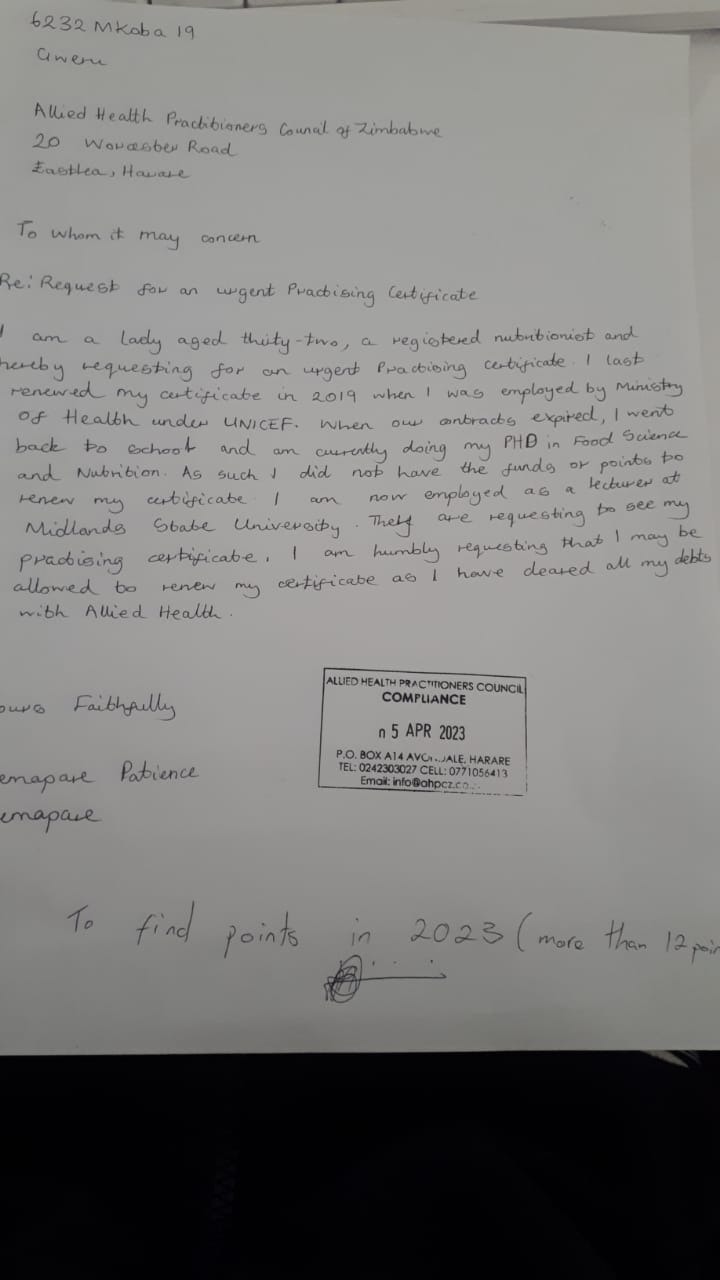 6232 Mkoba 19
Gweru
Allied Health Practitioners Council of Zimbabwe
20 Worcester Road
Eastlea, Harare
To whom it may concern
Re: Request for an urgent Practising Certificate
I am a lady aged thirty-two, a registered nutritionist and
hereby requesting for an urgent Practising certificate. I last
renewed my certificate in 2019 when I was employed by Ministry
of Health under UNICEF. When our contracts expired, I went
back to school and am currently doing my PHD in Food Science
and Nutrition. As such I did not have the funds or points to
renew my certificate. I am now employed as a lecturer at
Midlands State University. They are requesting to see my
practising certificate. I am humbly requesting that I may be
allowed to renew my certificate as I have cleared all my debts
with Allied Health.
ours Faithfully
emapare Patience
emapare
ALLIED HEALTH PRACTITIONERS COUNCIL
COMPLIANCE
05 APR 2023
P.O. BOX A14 AVONDALE, HARARE
TEL: 0242303027 CELL: 0771056413
Email: info@ahpcz.co
To find points in 2023 (more than 12 poin